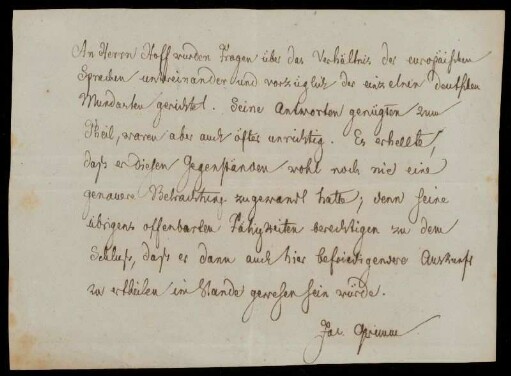 An Herrn Hoff wurden Fragen über das Verhältnis der europäischen
Sprachen untereinander und vorzüglich der einzelnen deutschen
Mundarten gerichtet. Seine Antworten genügten zum
Theil, waren aber auch öfter unrichtig. Es erhellte,
daß er diesen Gegenständen wohl noch nie eine
genauere Betrachtung zugewandt hatte; denn seine
übrigens offenbarten Fähigkeiten berechtigen zu dem
Schluß, daß er dann auch hier befriedigendere Auskunft
zu ertheilen im Stande gewesen sein würde.
Jac. Grimm